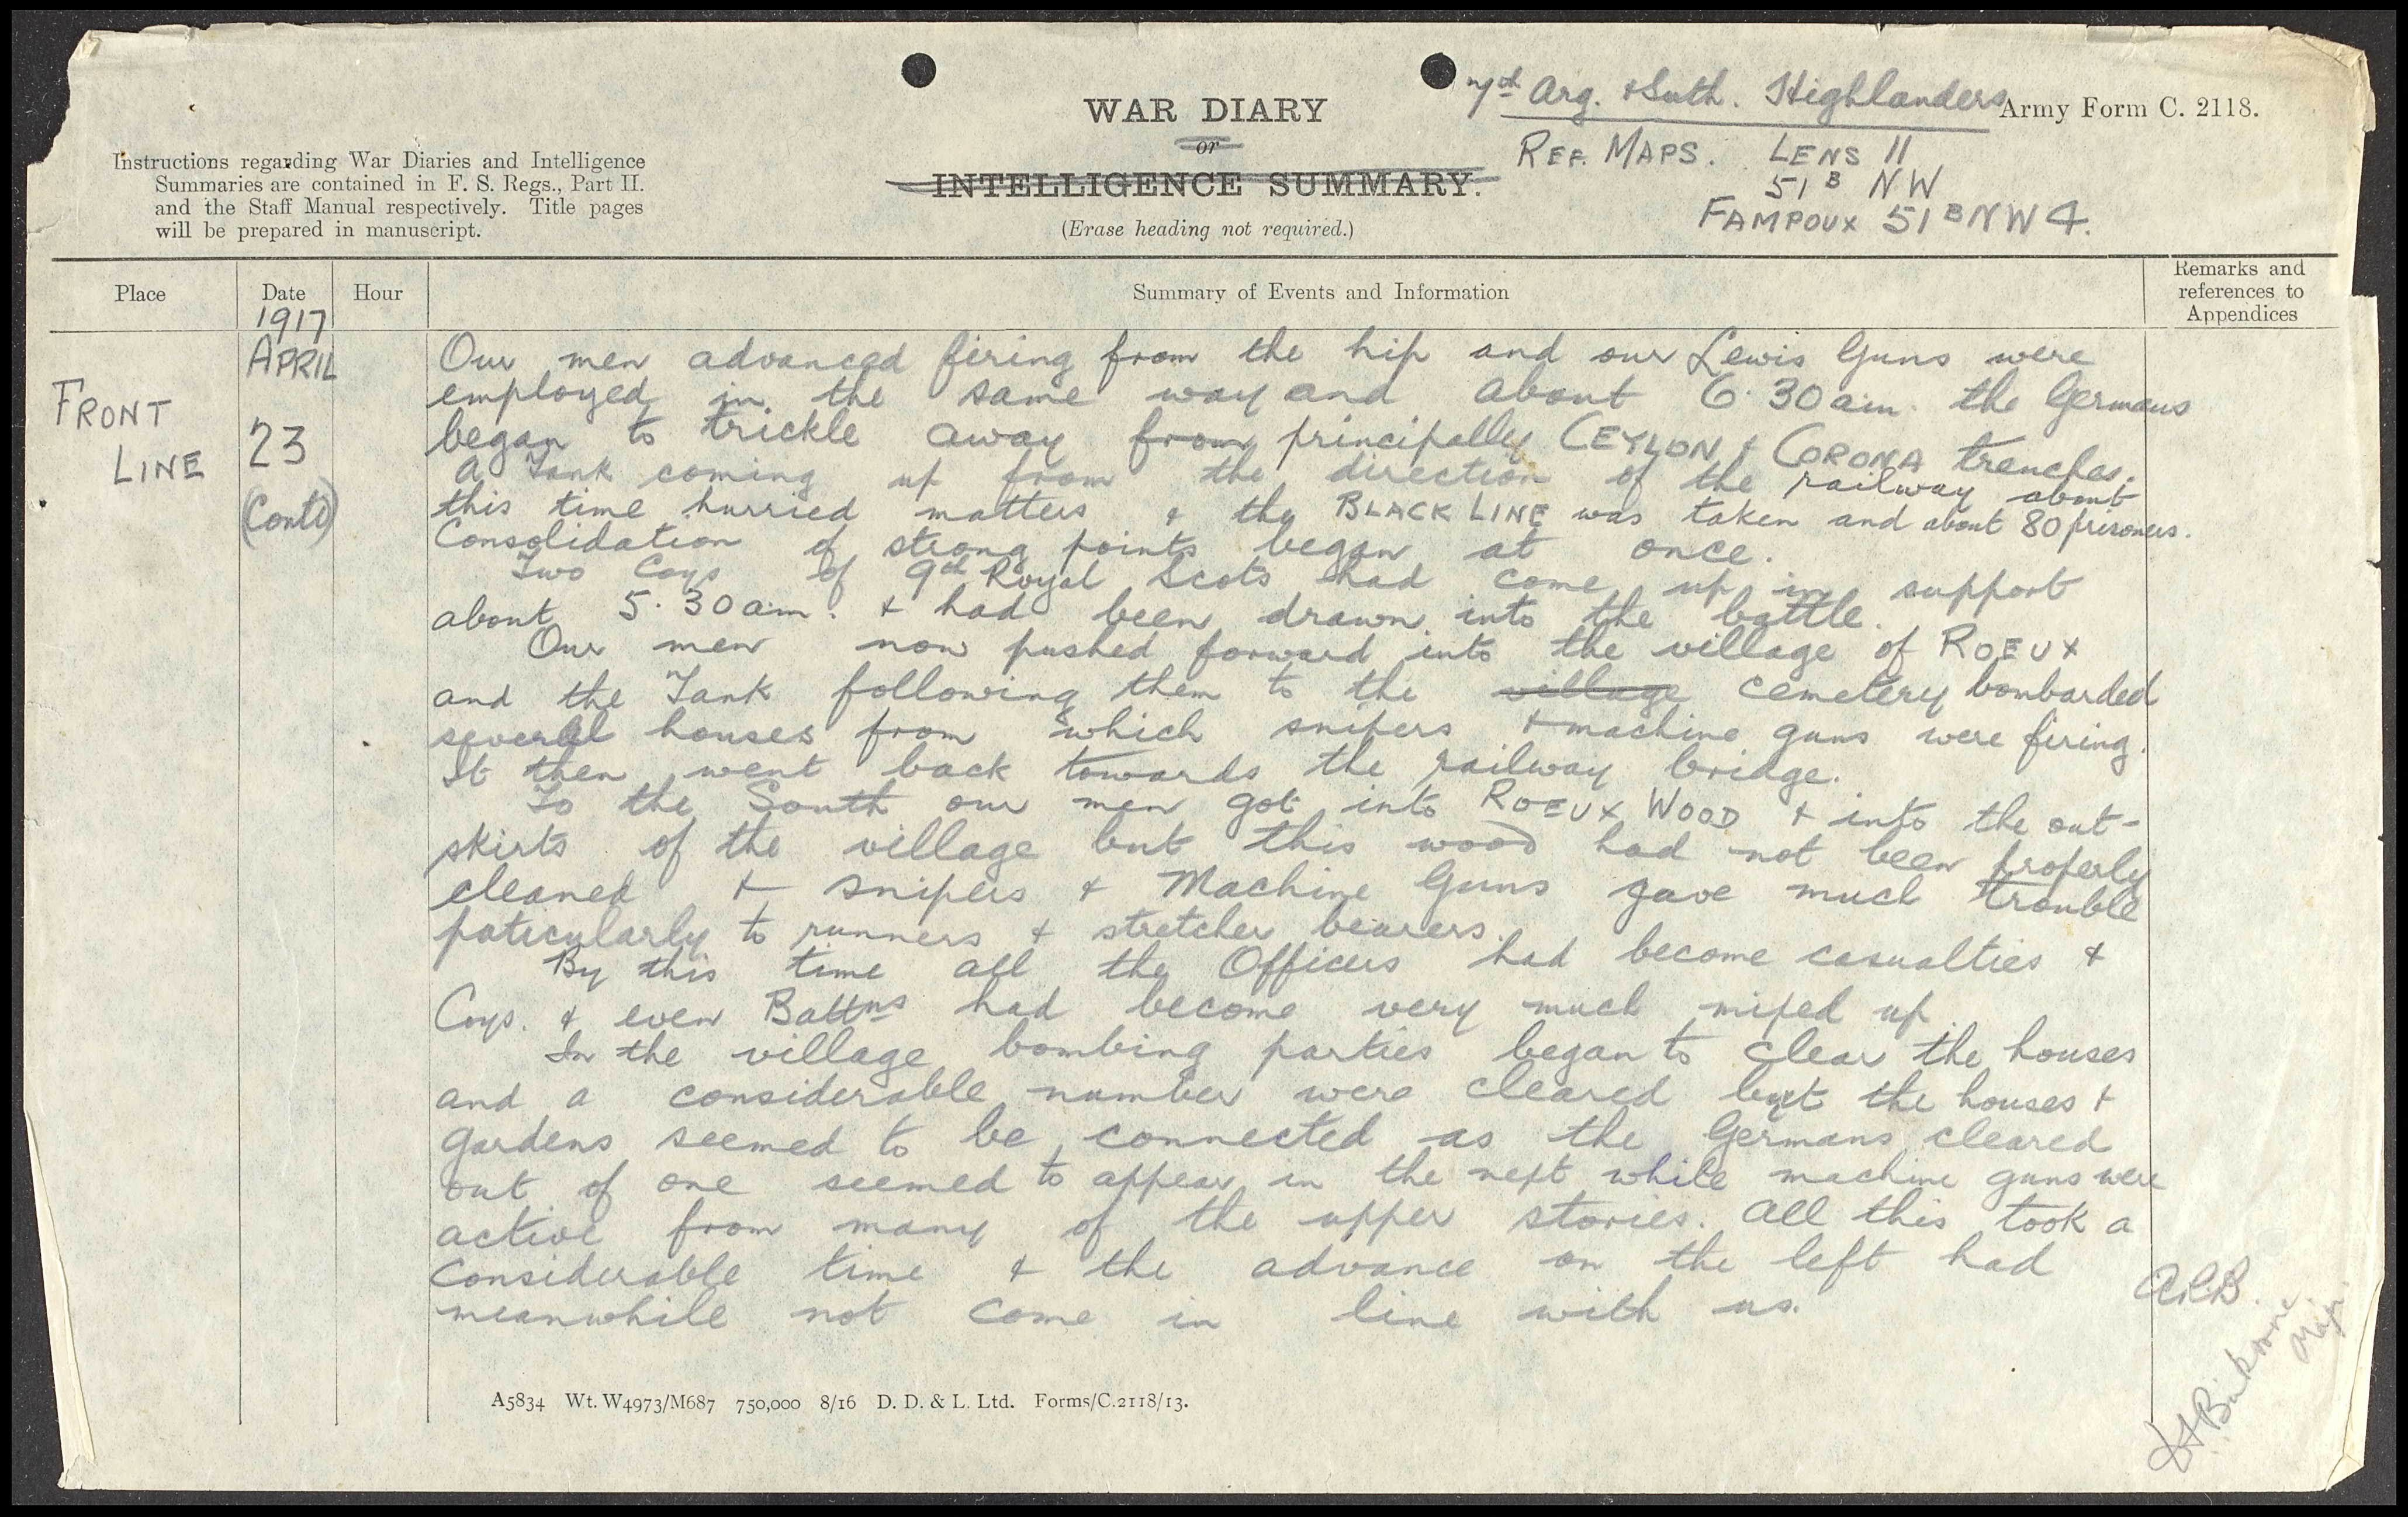 WAR DIARY
or
INTELLIGENCE SUMMARY.
(Erase heading not required.)
7th Arg. & Suth. Highlanders
Army Form C. 2118.
REF. MAPS. LENS 11
51B NW
FAMPOUX 51B NW 4.
Instructions regarding War Diaries and Intelligence
Summaries are contained in F. S. Regs., Part II.
and the Staff Manual respectively. Title pages
will be prepared in manuscript.
Place
Date
Hour
Summary of Events and Information
Remarks and
references to
Appendices
1917
APRIL
FRONT
LINE
23
(Contd)
Our men advanced firing from the hip and our Lewis Guns were
employed in the same way and about 6.30 a.m. the Germans
began to trickle away from principally CEYLON & CORONA trenches.
A Tank coming up from the direction of the railway about
this time hurried matters & the BLACK LINE was taken and about 80 prisoners.
Consolidation of strong points began at once.
Two Coys of 9th Royal Scots had come up in support
about 5.30 a.m. & had been drawn into the battle.
Our men now pushed forward into the village of ROEUX
and the Tank following them to the village cemetery bombarded
several houses from which snipers & machine guns were firing.
It then went back towards the railway bridge.
To the South our men got into ROEUX WOOD & into the out-
skirts of the village but this wood had not been properly
cleaned & snipers & Machine Guns gave much trouble
paticularly to runners & stretcher bearers.
By this time all the Officers had become casualties &
Coys. & even Battns had become very much mixed up.
In the village bombing parties began to clear the houses
and a considerable number were cleared but the houses &
gardens seemed to be connected as the Germans cleared
out of one seemed to appear in the next while machine guns were
active from many of the upper stories. All this took a
considerable time & the advance on the left had
meanwhile not come in line with us.
Maj.
A5834 Wt. W4973/M687 750,000 8/16 D. D. & L. Ltd. Forms/C.2118/13.